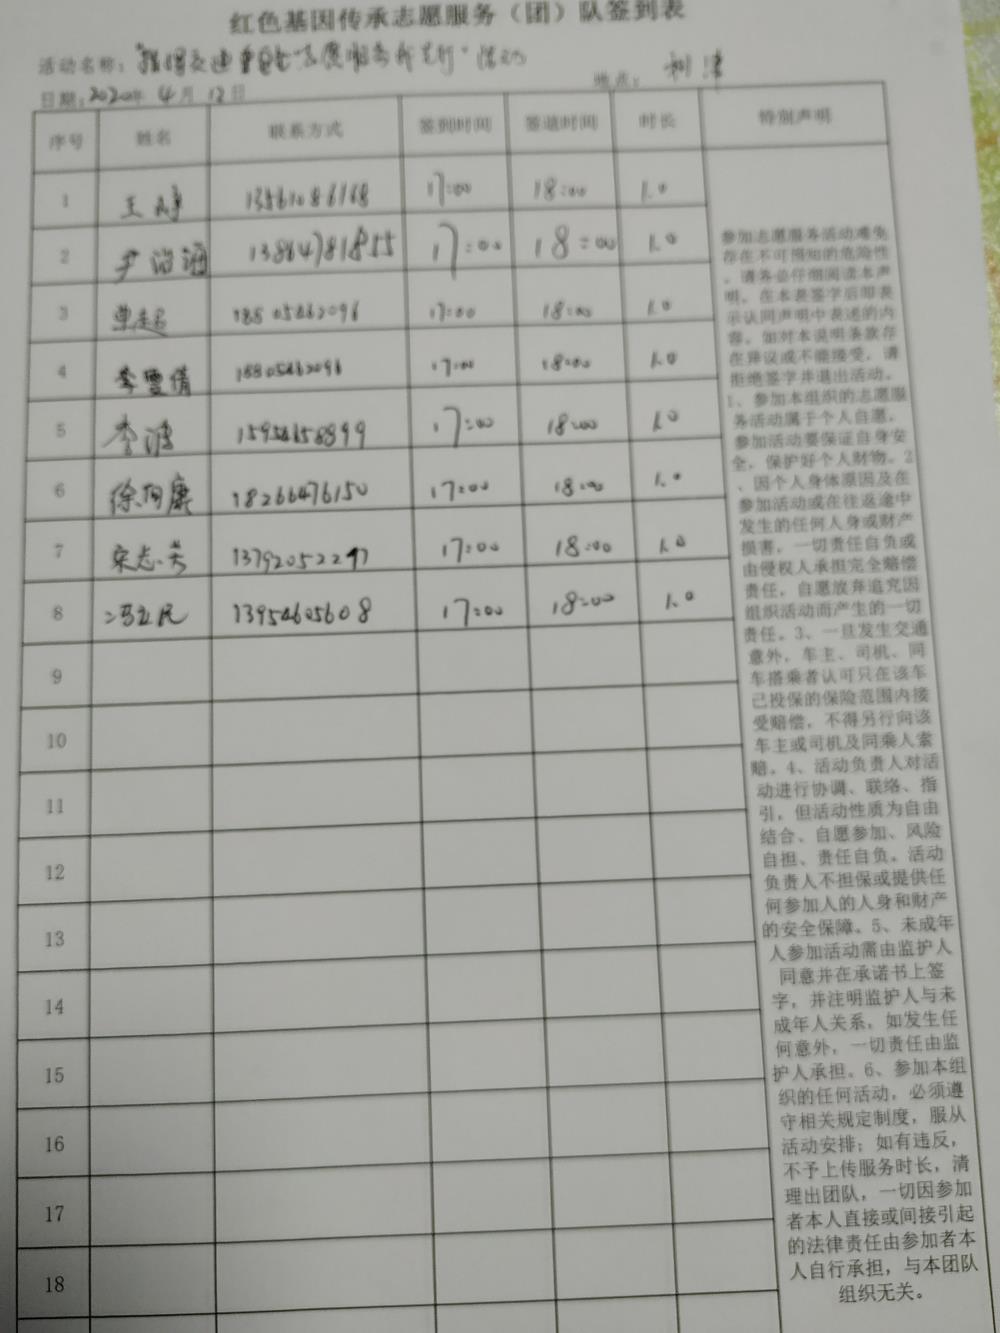 红色基因传承志愿服务（团）队签到表
活动名称：
地点： 利津
日期：2020年 4月 12日
序号 姓名 联系方式 签到时间 签退时间 时长 特别声明
1 王 13561086168 17:00 18:00 1.0
2 尹 13864781855 17:00 18:00 1.0
3 18805462096 17:00 18:00 1.0
4 李雪倩 18805462096 17:00 18:00 1.0
5 李 17:00 18:00 1.0
6 徐向康 18266476150 17:00 18:00 1.0
7 宋志 13792052297 17:00 18:00 1.0
8 冯立民 13954605608 17:00 18:00 1.0
9
10
11
12
13
14
15
16
17
18
参加志愿服务活动难免
存在不可预知的危险性
，请务必仔细阅读本声
明，在本表签字后即表
示认同声明中表述的内
容。如对本说明条款存
在异议或不能接受，请
拒绝签字并退出活动。
1、参加本组织的志愿服
务活动属于个人自愿，
参加活动要保证自身安
全，保护好个人财物。2
、因个人身体原因及在
参加活动或在往返途中
发生的任何人身或财产
损害，一切责任自负或
由侵权人承担完全赔偿
责任，自愿放弃追究因
组织活动而产生的一切
责任。3、一旦发生交通
意外，车主、司机、同
车搭乘者认可只在该车
已投保的保险范围内接
受赔偿，不得另行向该
车主或司机及同乘人索
赔。4、活动负责人对活
动进行协调、联络、指
引，但活动性质为自由
结合、自愿参加、风险
自担、责任自负。活动
负责人不担保或提供任
何参加人的人身和财产
的安全保障。5、未成年
人参加活动需由监护人
同意并在承诺书上签
字，并注明监护人与未
成年人关系，如发生任
何意外，一切责任由监
护人承担。6、参加本组
织的任何活动，必须遵
守相关规定制度，服从
活动安排；如有违反，
不予上传服务时长，清
理出团队，一切因参加
者本人直接或间接引起
的法律责任由参加者本
人自行承担，与本团队
组织无关。